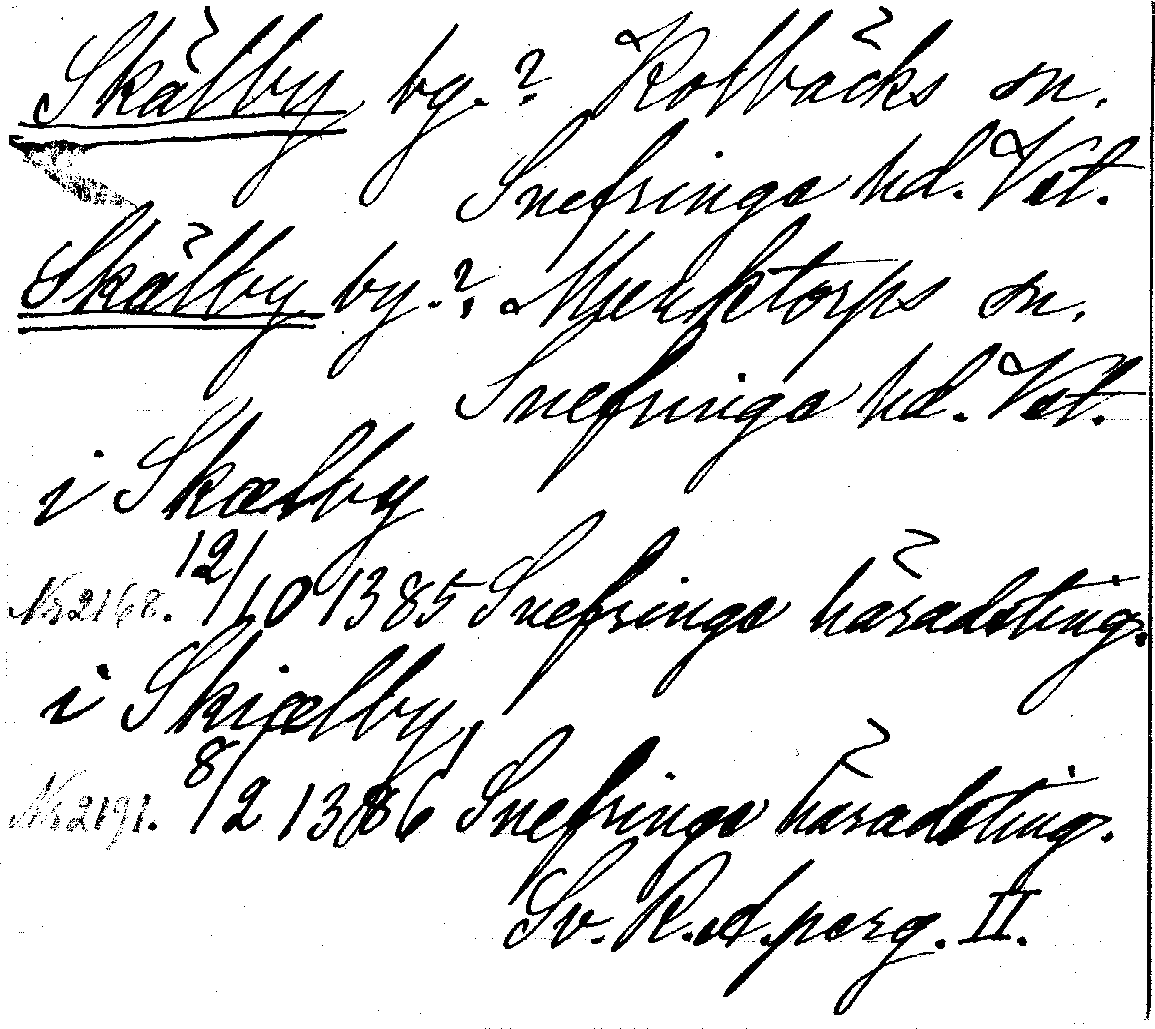 Skälby by.? Kolbäcks sn.
Snefringe hd. Vst.
Skälby by.? Munktorps sn.
Snefringe hd. Vst.
i Skælby
Nr 2168. 12/10 1385 Snefringe häradsting.
i Skiælby,
Nr 2191. 8/2 1386 Snefringe häradsting.
Sv. R.A. perg. II.